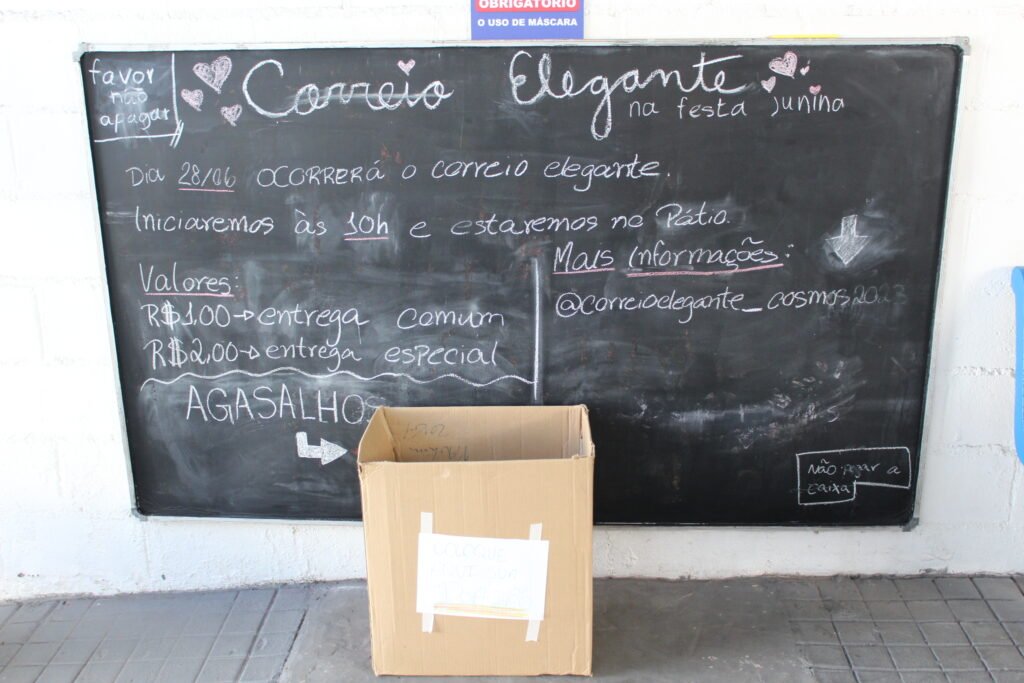 OBRIGATÓRIO
O USO DE MÁSCARA
favor
não
apagar
Correio Elegante
na festa junina
Dia 28/06 OCORRERÁ o correio elegante.
Iniciaremos às 10h e estaremos no Pátio.
Valores:
R$1,00→entrega comum
R$2,00→entrega especial
Mais informações:
@correioelegante_cosmos2023
AGASALHOS
Não pegar a
caixa
COLOQUE
AQUI SUA